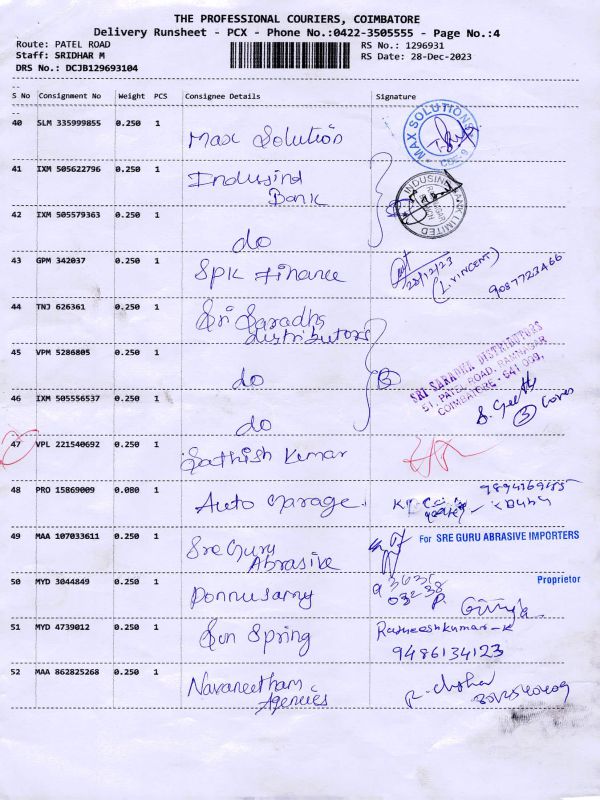 THE PROFESSIONAL COURIERS, COIMBATORE
Delivery Runsheet - PCX - Phone No.:0422-3505555 - Page No.:4
Route: PATEL ROAD RS No.: 1296931
Staff: SRIDHAR M RS Date: 28-Dec-2023
DRS No.: DCJB129693104
S No Consignment No Weight PCS Consignee Details Signature
40 SLM 335999855 0.250 1 Max Solution MAX SOLUTIONS CBE-9
41 IXM 505622796 0.250 1 Indusind
Bank INDUSIND BANK LIMITED
42 IXM 505579363 0.250 1 do
43 GPM 342037 0.250 1 SPK Finance 28/12/23
(L.VINCENT) 9087723466
44 TNJ 626361 0.250 1 Sri Saradhs
distributors
45 VPM 5286805 0.250 1 do SRI SARADHA DISTRIBUTORS
51, PATEL ROAD, RAMNAGAR
COIMBATORE - 641 009.
46 IXM 505556537 0.250 1 do S. Geetha
③ Cover
47 VPL 221540692 0.250 1 Sathish Kumar
48 PRO 15869009 0.080 1 Auto Garage
49 MAA 107033611 0.250 1 Sre Guru
Abrasive For SRE GURU ABRASIVE IMPORTERS
Proprietor
50 MYD 3044849 0.250 1 Ponnusamy 93631
03238
P.
51 MYD 4739012 0.250 1 Sun Spring Rajneeshkumar-K
9486134123
52 MAA 862825268 0.250 1 Navaneetham
Agencies